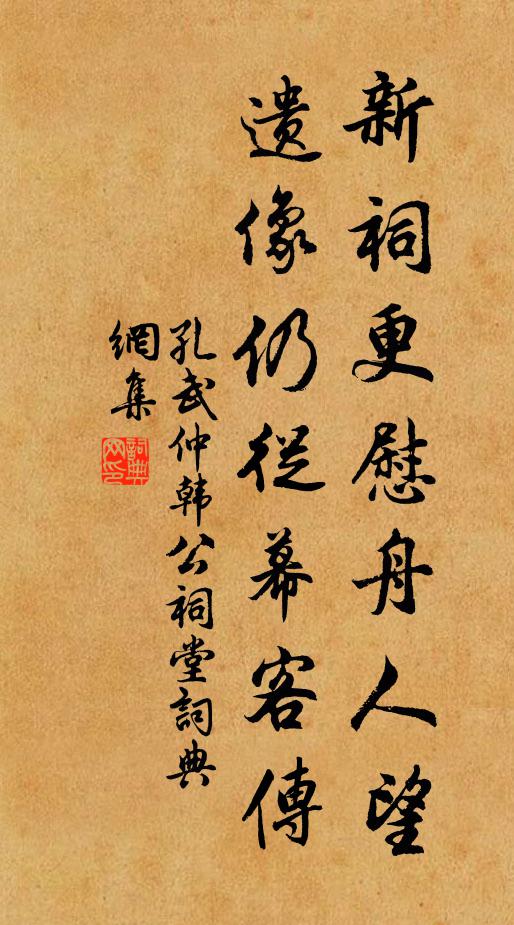 新祠更慰舟人望
遺像仍從幕客傳
孔武仲韩公祠堂詞典
網集
詞典
网印